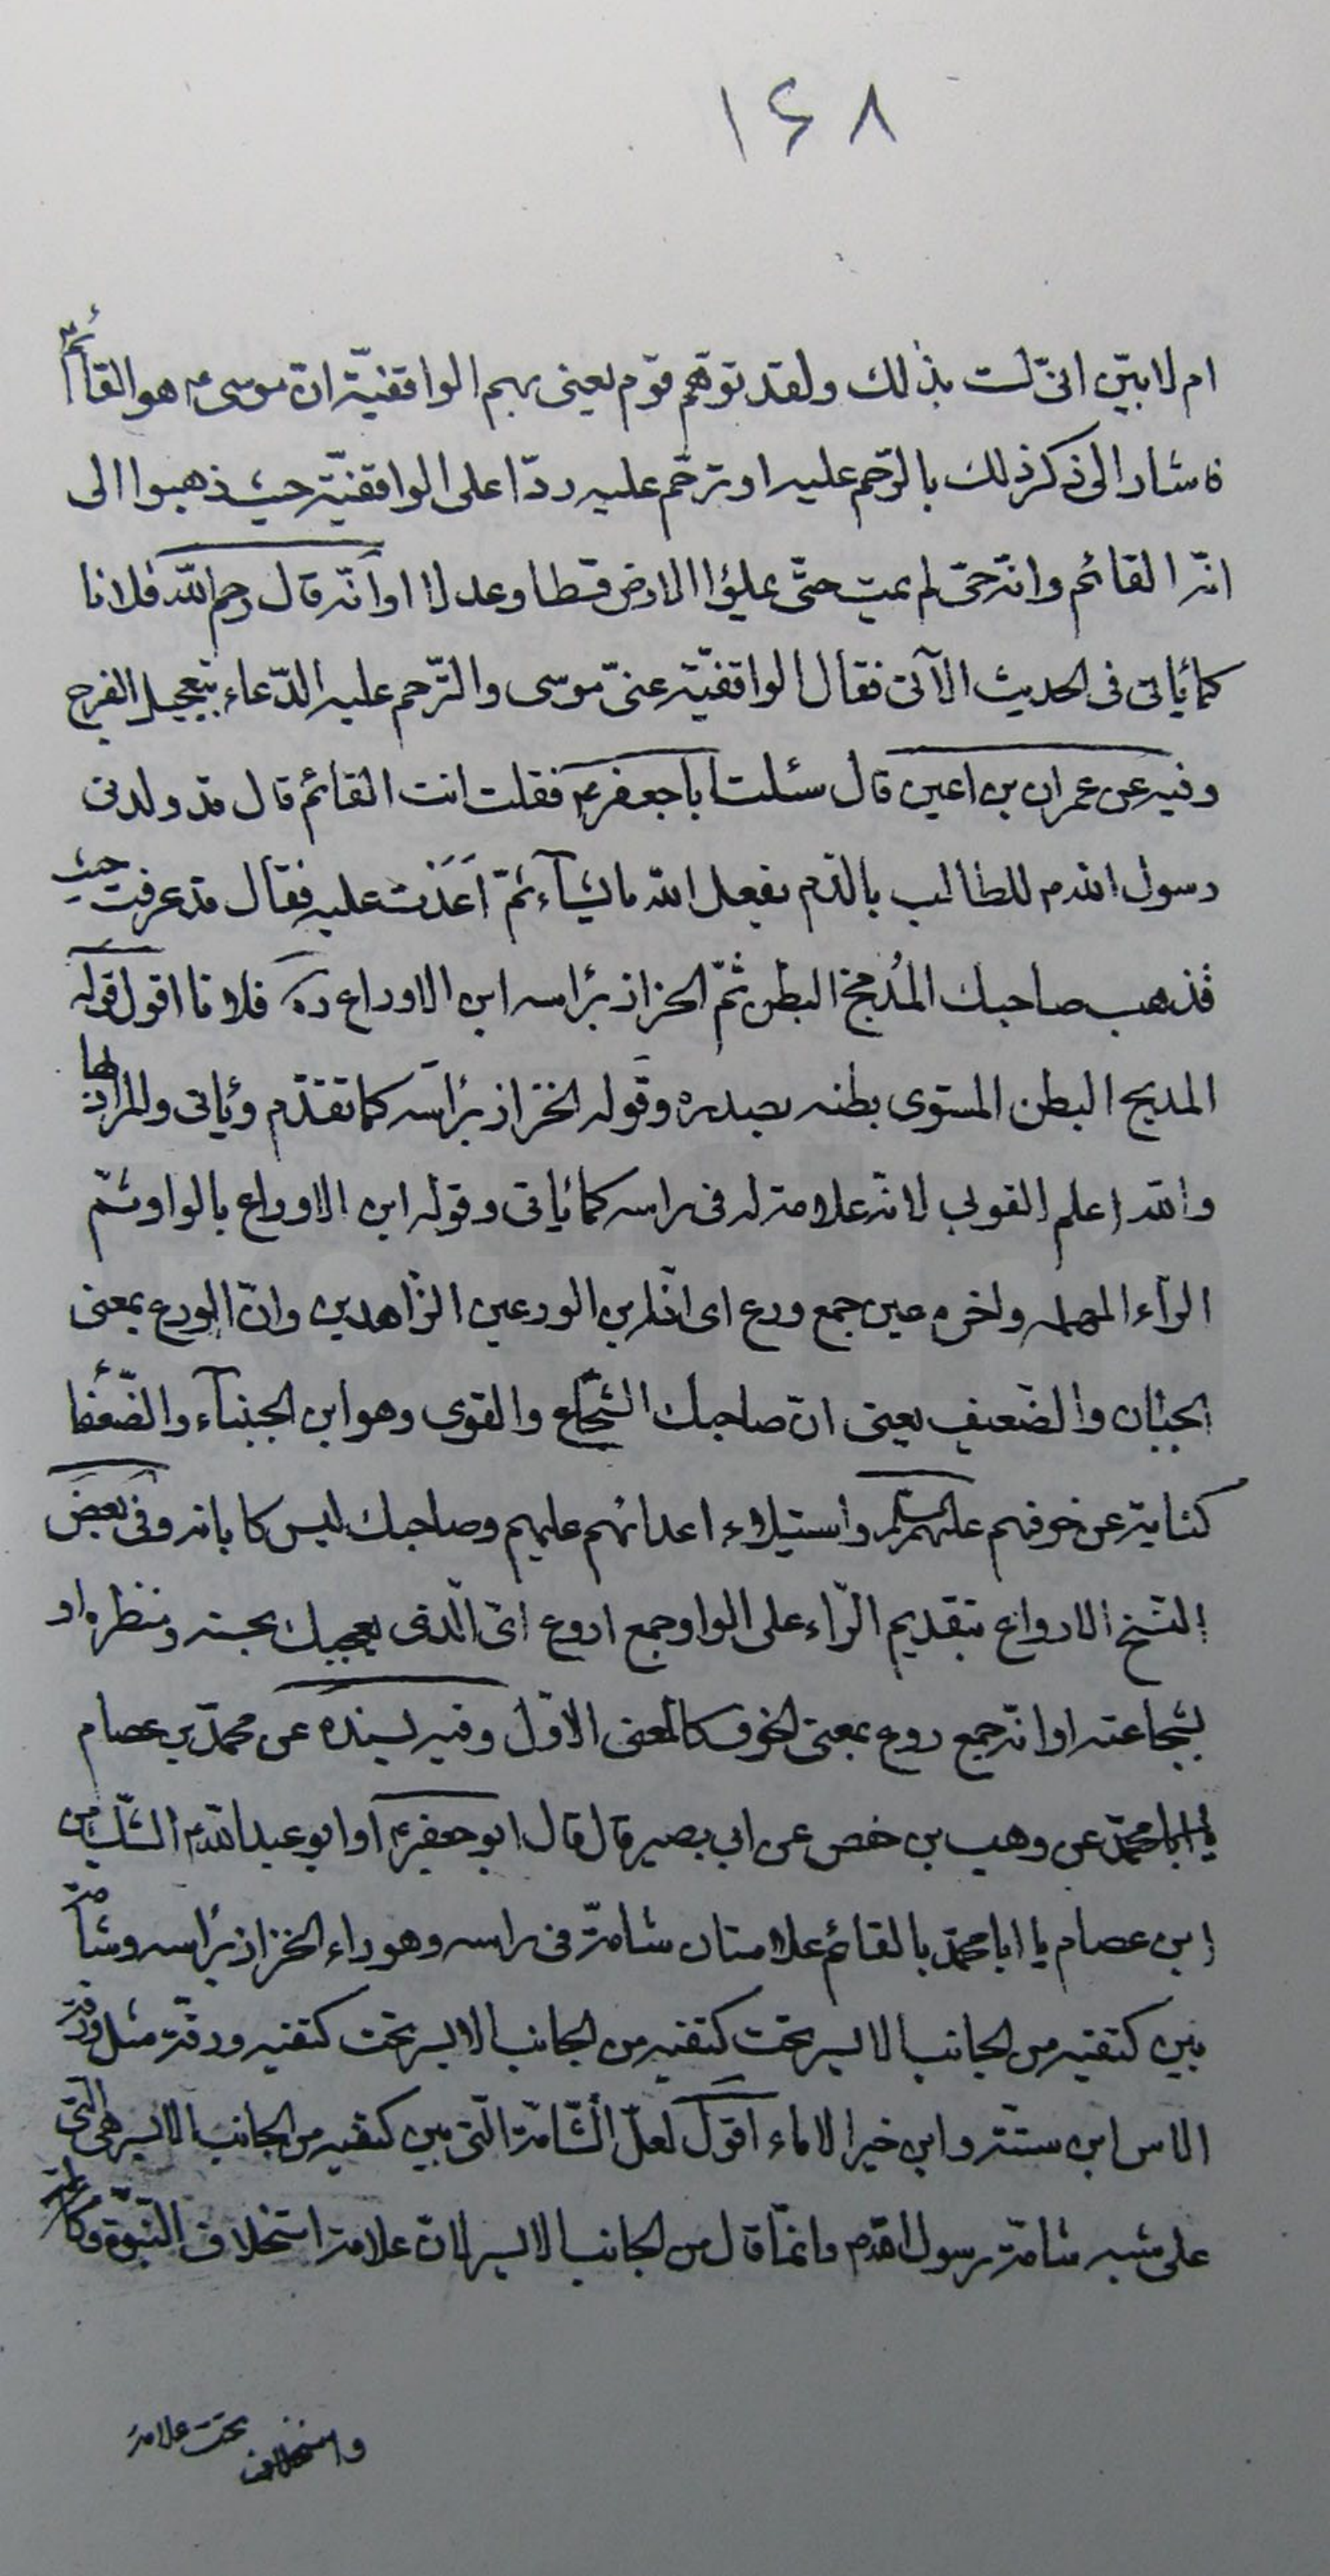 ١۶٨
ام لا بيّن انّى لست بذلك ولقد توهّم قوم يعنى بهم الواقفيّة انّ موسى ع هو القائم
فاشار الى ذكر ذلك بالترّحم عليه او ترحّم عليه ردّا على الواقفيّة حيث ذهبوا الى
انّه القائم وانّه حىّ لم يمت حتّى يملؤا الارض قسطا وعدلا او انّه قال رحم الله فلانا
كما يأتى فى الحديث الآتى فقال الواقفيّة عنى موسى والترّحم عليه الدّعاء بتعجيل الفرج
وفيه عن عمران بن اعين قال سئلت اباجعفر ع فقلت انت القائم قال قد ولدنى
رسول الله ص للطالب بالدّم يفعل الله ما يشآء ثمّ اَعَدْت عليه فقال قد عرفت حيث
فذهب صاحبك المُدبح البطن ثمّ الحزاز برأسه ابن الاوراع ره فلانا اقول قوله
المدبح البطن المستوى بطنه بصدره وقوله الخزاز برأسه كما تقدّم ويأتى والمراد بها
والله اعلم القوبى لانّه علامة له فى راسه كما يأتى وقوله ابن الاوراع بالواو ثمّ
الرّاء المهمله واخره عين جمع ورع اى انّه ابن الورعين الزّاهدين وانّ الورع بمعنى
الجبان والضعيف يعنى انّ صاحبك الشّجاع والقوى وهو ابن الجبنآء والضّعفا
كناية عن خوفهم عليهم السلم واستيلاء اعدائهم عليهم وصاحبك ليس كابائه وفى بعض
النّسخ الارواع بتقديم الرّاء على الواو جمع اروع اى الّذى يعجبك بحسنه ومنظره او
بشجاعته او انّه جمع روع بمعنى الخوف كالمعنى الاوّل وفيه بسنده عن محمّد بن عصام
عن وهيب بن حفص عن ابى بصير قال قال ابوجعفر ع او ابوعبدالله ع الشّك من
ابن عصام يا ابامحمّد بالقائم علامتان شامة فى راسه وهو داء الخزاز برأسه وشامة
بين كتفيه من الجانب الايسر تحت كتفيه من الجانب الايسر تحت كتفيه ورقة مثل ورقة
الاس ابن ستّة وابن خير الاماء اقول لعلّ الشّامة الّتى بين كتفيه من الجانب الايسر هى الّتى
على شبه شامة رسول الله ص وانّما قال من الجانب الايسر لانّ علامة استخلاف النّبوّة
واستخلاف
تحت علامة